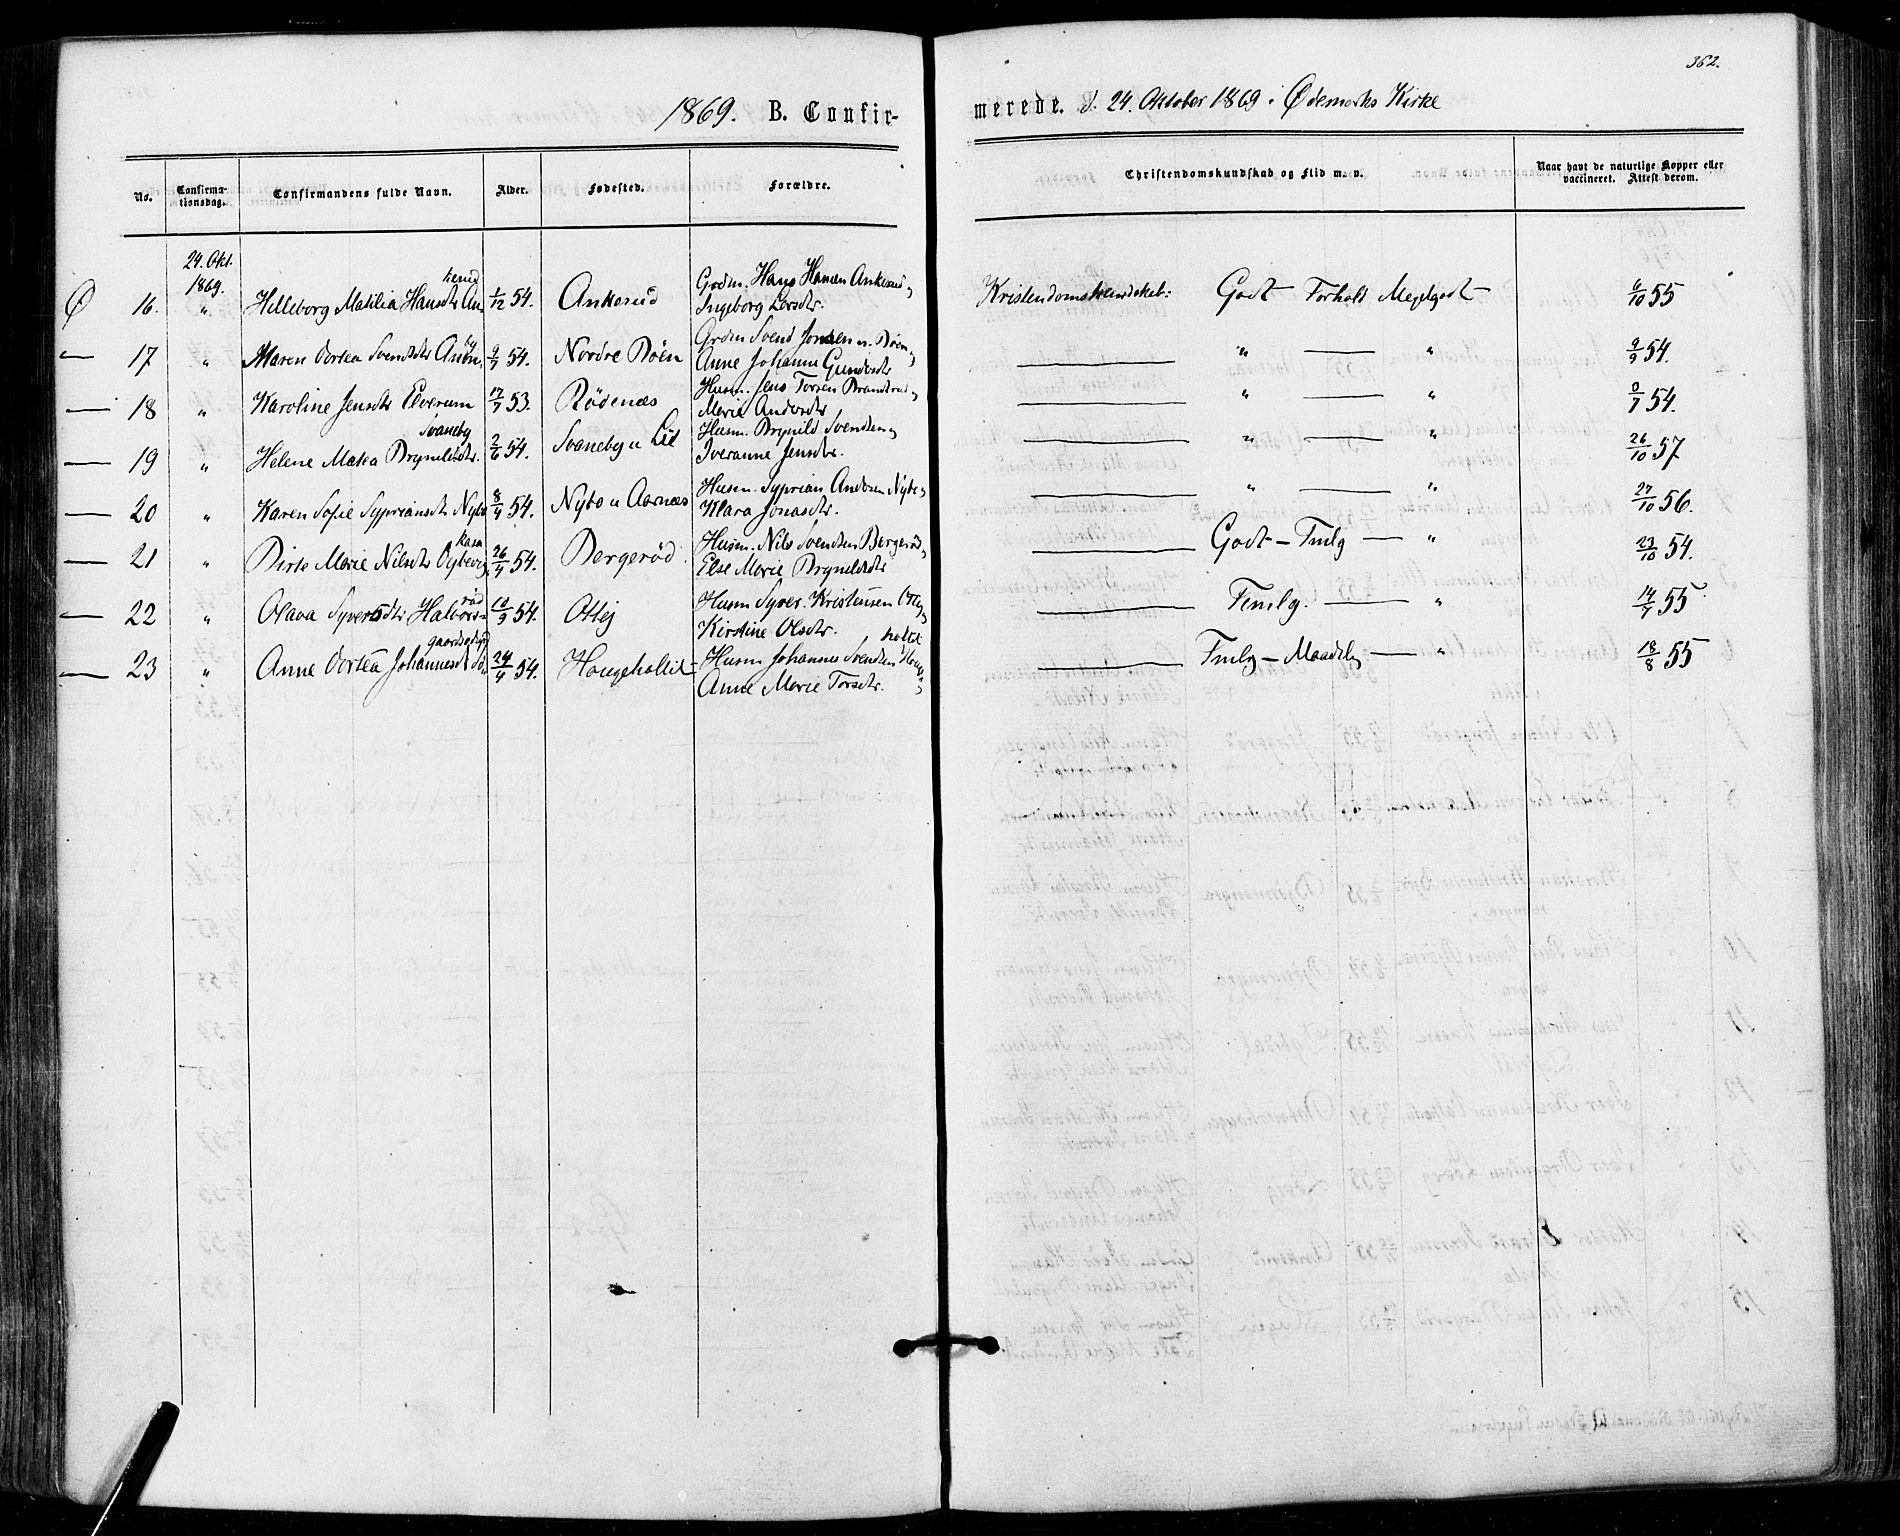 362.
1869. B. Confirmerede. d. 24. Oktober 1869 i Ødemarks Kirke
No. Confirmationsdag. Confirmandens fulde Navn. Alder. Fødested. Forældre. Christendomskundskab og Flid m. v. Naar havt de naturlige Kopper eller vaccineret. Attest derom.
24. Okt. 1869.
Ø 16. " Helleborg Matilia Hansdtr Ankerud 1/12 54. Ankerud Gdm. Hans Hansen Ankerud, Ingeborg Larsdtr. Kristendomskundskab: Godt Forhold Megetgodt 6/10 55
— 17 " Maren Dortea Svendsdtr Aneby 9/7 54. Nordre Böen Grdm Svend Jonsen n. Böen, Anne Johanne Gundersdtr — " — " 9/9 54.
— 18 " Karoline Jensdtr Elverum 17/7 53. Rödenæs Husm. Jens Torsen Brandsrud, Marie Andersdtr — " — " 8/7 54.
— 19 " Helene Matea Brynildsdtr. Svaneby 2/6 54. Svaneby u Lil Husm. Brynild Svendsen, Iveranne Jensdtr. — " — " 26/10 57
— 20 " Karen Sofie Sypriansdtr Nybo 8/4 54. Nybo u Aarnæs Husm. Syprian Andersen Nybo, Klara Jonasdtr. — " — " 27/10 56.
— 21 " Dirte Marie Nilsdtr 26/4 54. Bergeröd Husm. Nils Svendsen Bergeröd, Else Marie Brynildsdtr — Godt — Tmlg — " 23/10 54.
— 22 " Olava Syversdtr Halvorsröd 10/9 54. Ottej Husm Syver Kristensen Ottej, Kirstine Olsdtr. — Temlg. — " 14/7 55
— 23 " Anne Dortea Johannesdtr 24/4 54. Hougeholtet Husm Johannes Svendsen Hougeholtet, Anne Marie Torsdtr. — Tmlg — Maadelg — " 18/8 55